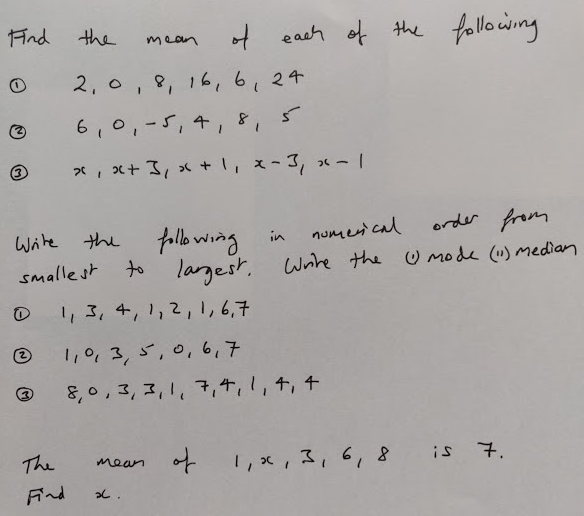 Find the mean of each of the following
① 2, 0, 8, 16, 6, 24
② 6, 0, -5, 4, 8, 5
③ x, x+3, x+1, x-3, x-1
Write the following in numerical order from
smallest to largest. Write the (i) mode (ii) median
① 1, 3, 4, 1, 2, 1, 6, 7
② 1, 0, 3, 5, 0, 6, 7
③ 8, 0, 3, 3, 1, 7, 4, 1, 4, 4
The mean of 1, x, 3, 6, 8 is 7.
Find x.